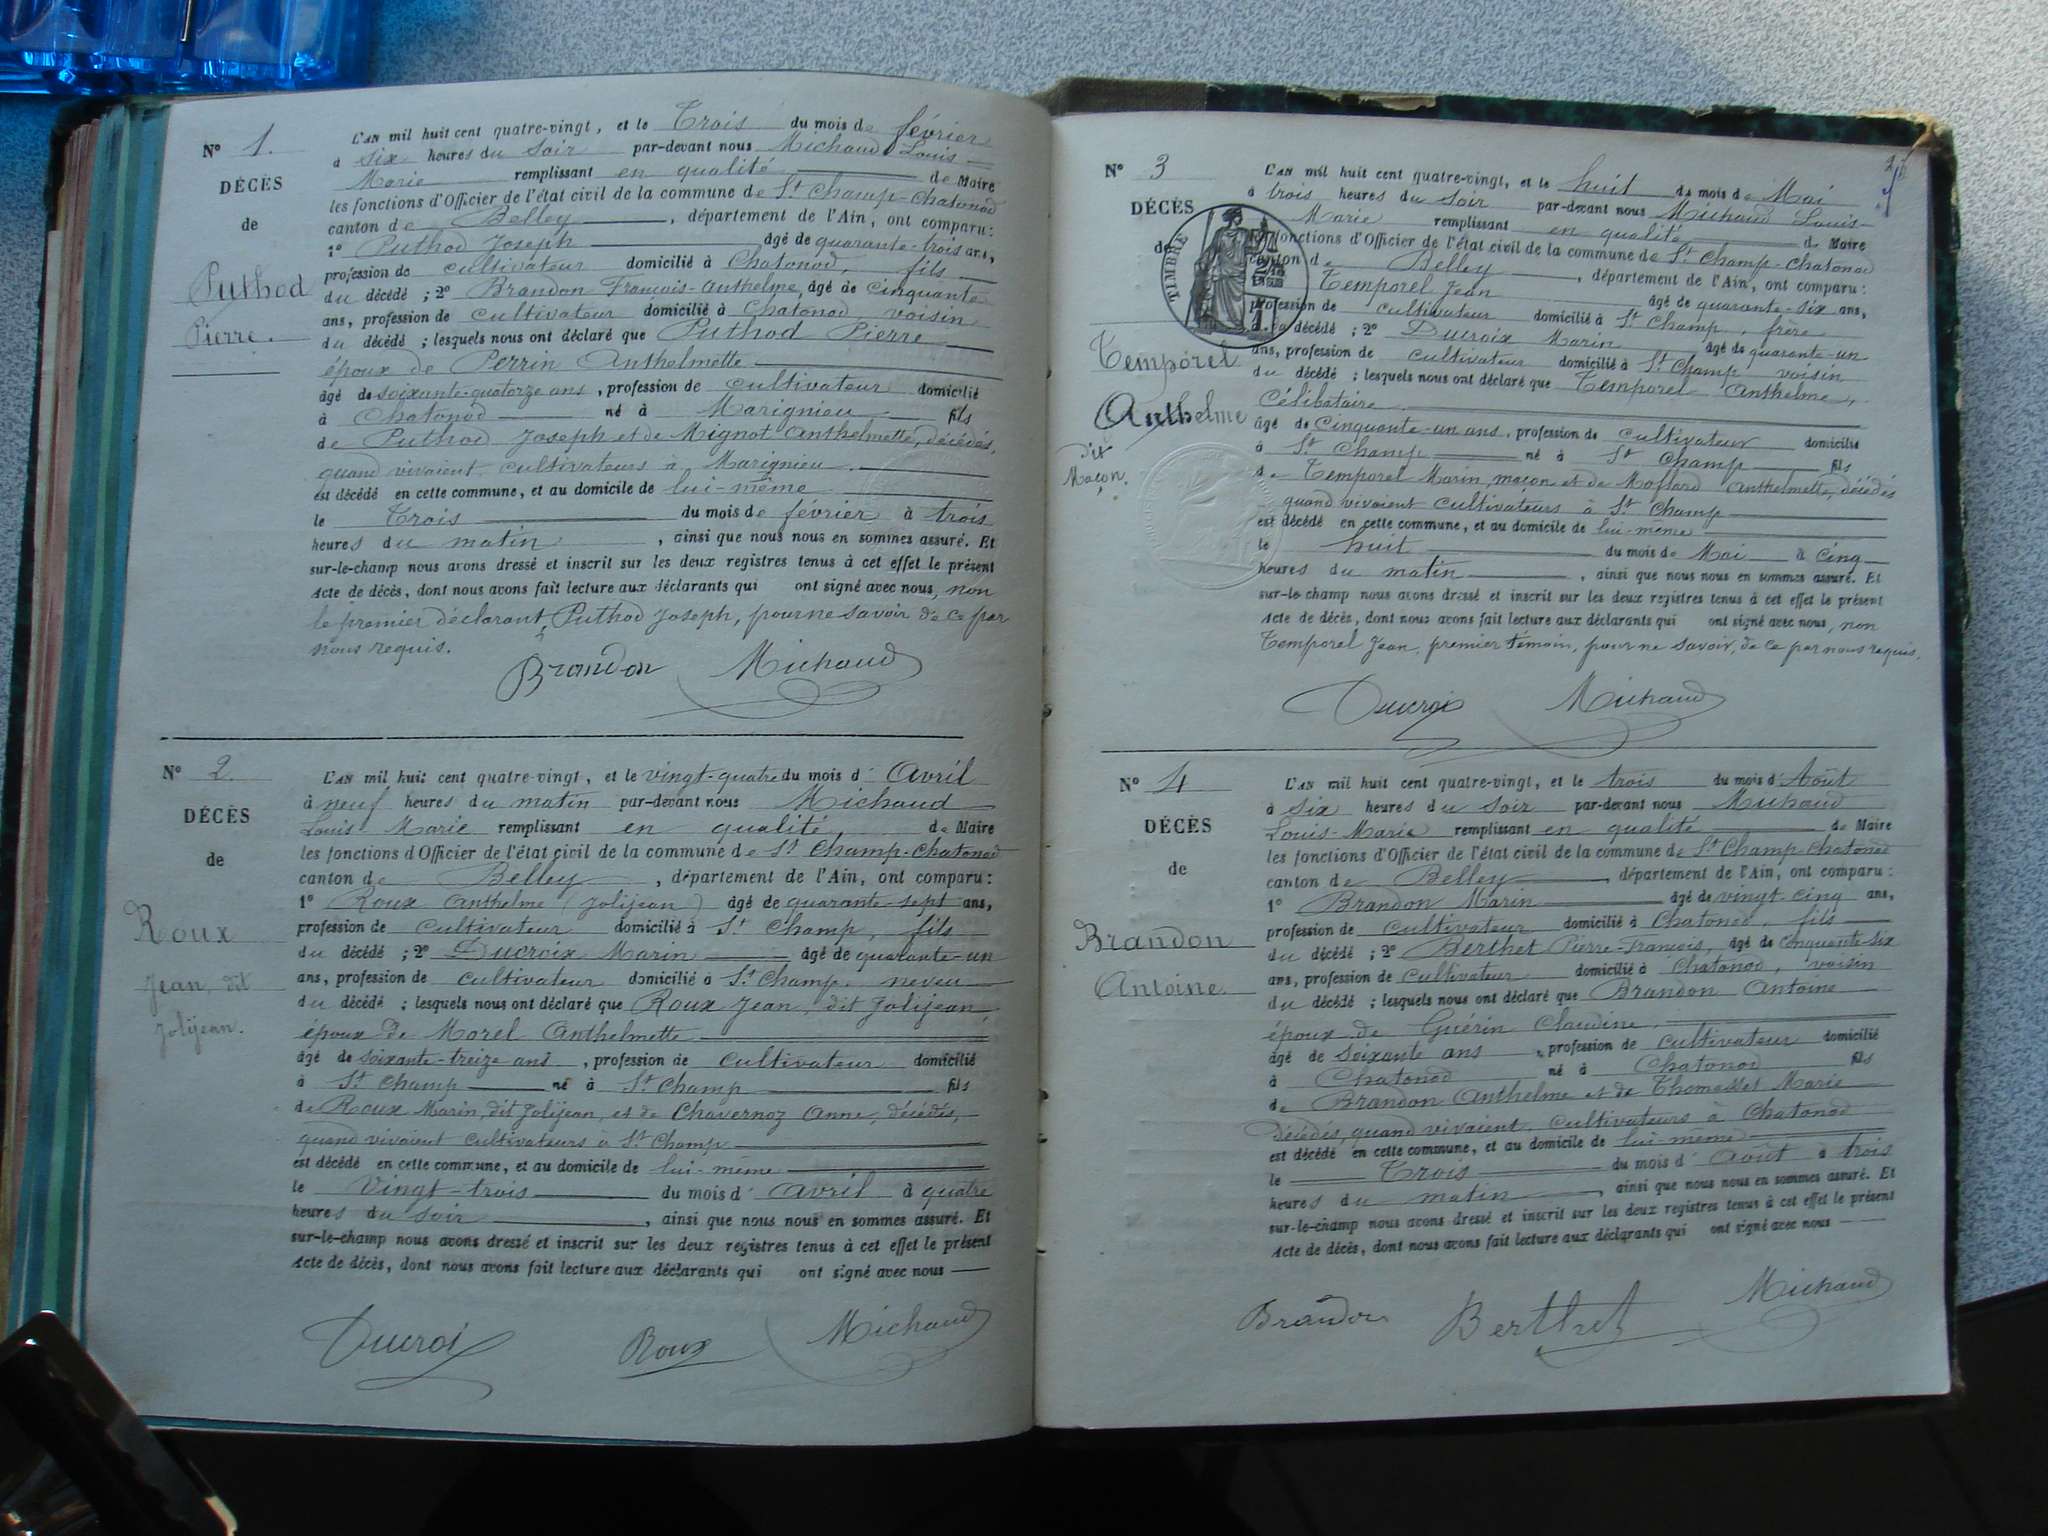 N° 1.
DÉCÈS
de
Puthod
Pierre.
L'AN mil huit cent quatre-vingt, et le Trois du mois de février
à six heures du soir par-devant nous Michaud Louis-
Marie remplissant en qualité de Maire
les fonctions d'Officier de l'état civil de la commune de St Champ-Chatonod
canton de Belley, département de l'Ain, ont comparu:
1° Puthod Joseph âgé de quarante-trois ans,
profession de cultivateur domicilié à Chatonod, fils
du décédé; 2° Brandon François-Anthelme, âgé de cinquante
ans, profession de cultivateur domicilié à Chatonod, voisin
du décédé; lesquels nous ont déclaré que Puthod Pierre
époux de Perrin Anthelmette
âgé de soixante-quatorze ans, profession de cultivateur domicilié
à Chatonod né à Marignieu fils
de Puthod Joseph et de Mignot Anthelmette, décédés,
quand vivaient cultivateurs à Marignieu.
est décédé en cette commune, et au domicile de lui-même
le Trois du mois de février à trois
heures du matin, ainsi que nous nous en sommes assuré. Et
sur-le-champ nous avons dressé et inscrit sur les deux registres tenus à cet effet le présent
Acte de décès, dont nous avons fait lecture aux déclarants qui ont signé avec nous, non
le premier déclarant, Puthod Joseph, pour ne savoir de ce par
nous requis.
Brandon Michaud
N° 2
DÉCÈS
de
Roux
Jean, dit
Jolijean.
L'AN mil huit cent quatre-vingt, et le vingt-quatre du mois d'Avril
à neuf heures du matin par-devant nous Michaud
Louis-Marie remplissant en qualité de Maire
les fonctions d'Officier de l'état civil de la commune de St Champ-Chatonod
canton de Belley, département de l'Ain, ont comparu:
1° Roux Anthelme (Jolijean) âgé de quarante-sept ans,
profession de cultivateur domicilié à St Champ, fils
du décédé; 2° Ducroix Marin âgé de quarante-un
ans, profession de cultivateur domicilié à St Champ, neveu
du décédé; lesquels nous ont déclaré que Roux Jean, dit Jolijean,
époux de Morel Anthelmette
âgé de soixante-treize ans, profession de cultivateur domicilié
à St Champ né à St Champ fils
de Roux Marin, dit Jolijean, et de Chavernoz Anne, décédés,
quand vivaient cultivateurs à St Champ
est décédé en cette commune, et au domicile de lui-même
le Vingt-trois du mois d'avril à quatre
heures du soir, ainsi que nous nous en sommes assuré. Et
sur-le-champ nous avons dressé et inscrit sur les deux registres tenus à cet effet le présent
Acte de décès, dont nous avons fait lecture aux déclarants qui ont signé avec nous
Ducroi Roux Michaud
N° 3
DÉCÈS
de
TIMBRE
Temporel
Anthelme
dit
Maçon.
L'AN mil huit cent quatre-vingt, et le huit du mois de Mai
à trois heures du soir par-devant nous Michaud Louis-
Marie remplissant en qualité de Maire
fonctions d'Officier de l'état civil de la commune de St Champ-Chatonod
canton de Belley, département de l'Ain, ont comparu:
Temporel Jean âgé de quarante-six ans,
profession de cultivateur domicilié à St Champ, frère
du décédé; 2° Ducroix Marin âgé de quarante-un
ans, profession de cultivateur domicilié à St Champ voisin
du décédé; lesquels nous ont déclaré que Temporel Anthelme,
Célibataire
âgé de Cinquante-un ans, profession de cultivateur domicilié
à St Champ né à St Champ fils
de Temporel Marin, maçon et de Mollard Anthelmette, décédés
quand vivaient cultivateurs à St Champ
est décédé en cette commune, et au domicile de lui-même
le huit du mois de Mai à cinq
heures du matin, ainsi que nous nous en sommes assuré. Et
sur-le-champ nous avons dressé et inscrit sur les deux registres tenus à cet effet le présent
Acte de décès, dont nous avons fait lecture aux déclarants qui ont signé avec nous, non
Temporel Jean, premier témoin, pour ne savoir, de ce par nous requis.
Ducroi Michaud
N° 4
DÉCÈS
de
Brandon
Antoine.
L'AN mil huit cent quatre-vingt, et le trois du mois d'Août
à six heures du soir par-devant nous Michaud
Louis-Marie remplissant en qualité de Maire
les fonctions d'Officier de l'état civil de la commune de St Champ-Chatonod
canton de Belley, département de l'Ain, ont comparu:
1° Brandon Marin âgé de vingt-cinq ans,
profession de cultivateur domicilié à Chatonod, fils
du décédé; 2° Berthet Pierre-François, âgé de cinquante-six
ans, profession de cultivateur domicilié à Chatonod, voisin
du décédé; lesquels nous ont déclaré que Brandon Antoine
époux de Guérin Claudine,
âgé de soixante ans, profession de cultivateur domicilié
à Chatonod né à Chatonod fils
de Brandon Anthelme et de Thomasset Marie
décédés, quand vivaient, cultivateurs à Chatonod
est décédé en cette commune, et au domicile de lui-même
le Trois du mois d'août à trois
heures du matin, ainsi que nous nous en sommes assuré. Et
sur-le-champ nous avons dressé et inscrit sur les deux registres tenus à cet effet le présent
Acte de décès, dont nous avons fait lecture aux déclarants qui ont signé avec nous
Brandon Berthet Michaud